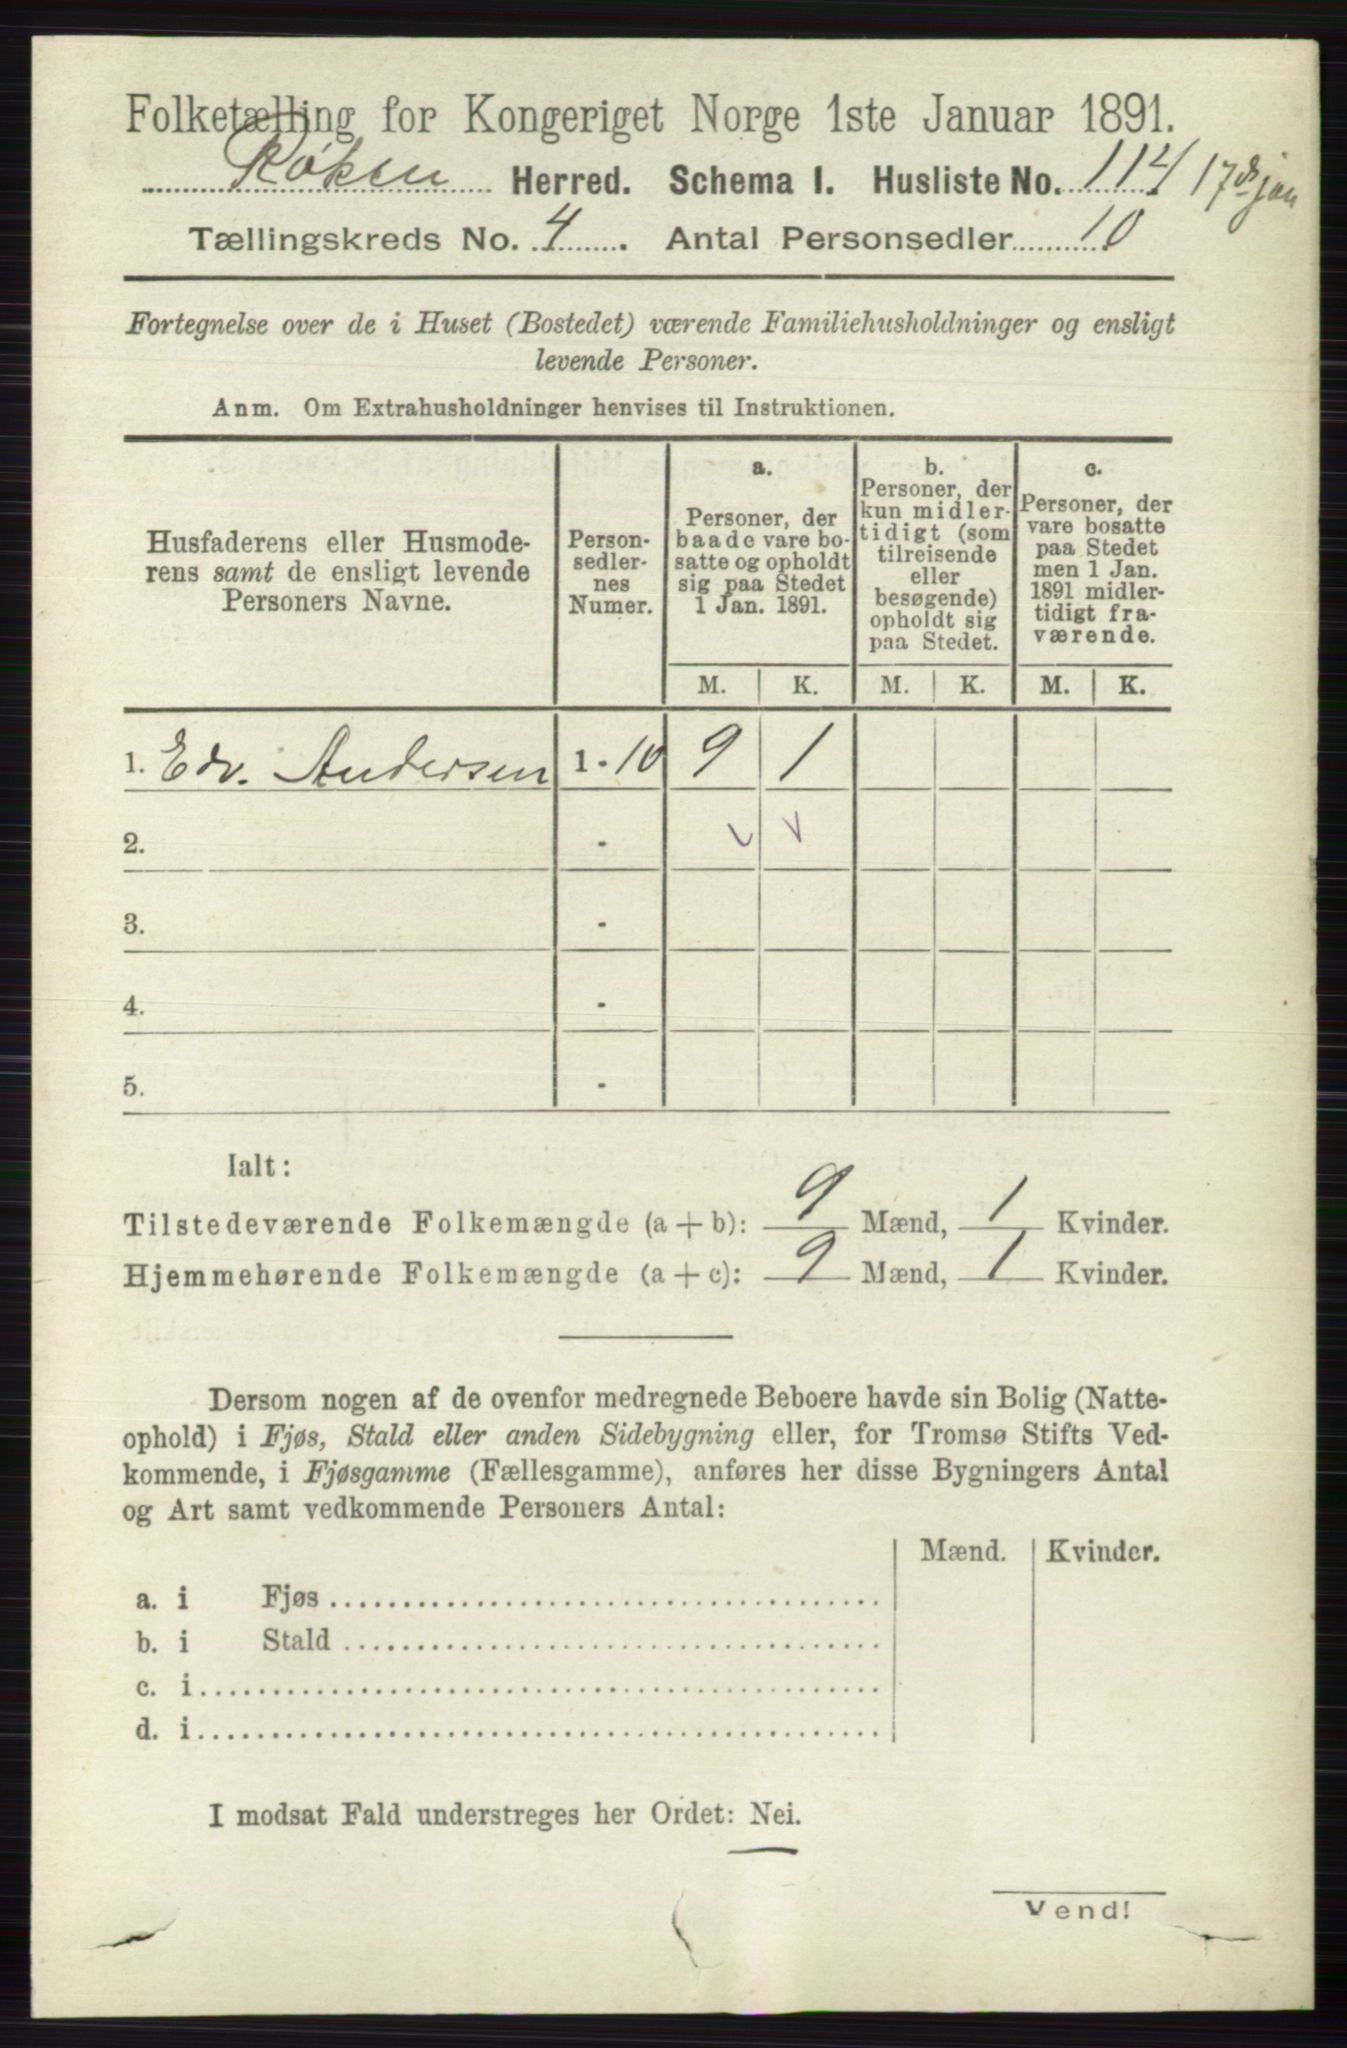 Folketælling for Kongeriget Norge 1ste Januar 1891.
Røken Herred. Schema I. Husliste No. 114 17de jan
Tællingskreds No. 4. Antal Personsedler 10
Fortegnelse over de i Huset (Bostedet) værende Familiehusholdninger og ensligt
levende Personer.
Anm. Om Extrahusholdninger henvises til Instruktionen.
Husfaderens eller Husmode-
rens samt de ensligt levende
Personers Navne.
Person-
sedler-
nes
Numer.
a.
Personer, der
baade vare bo-
satte og opholdt
sig paa Stedet
1 Jan. 1891.
b.
Personer, der
kun midler-
tidigt (som
tilreisende
eller
besøgende)
opholdt sig
paa Stedet.
c.
Personer, der
vare bosatte
paa Stedet
men 1 Jan.
1891 midler-
tidigt fra-
værende.
M. K. M. K. M. K.
1. Edv. Andersen 1 - 10 9 1
2. -
3. -
4. -
5. -
Ialt:
Tilstedeværende Folkemængde (a + b): 9 Mænd, 1 Kvinder.
Hjemmehørende Folkemængde (a + c): 9 Mænd, 1 Kvinder.
Dersom nogen af de ovenfor medregnede Beboere havde sin Bolig (Natte-
ophold) i Fjøs, Stald eller anden Sidebygning eller, for Tromsø Stifts Ved-
kommende, i Fjøsgamme (Fællesgamme), anføres her disse Bygningers Antal
og Art samt vedkommende Personers Antal:
Mænd. Kvinder.
a. i Fjøs
b. i Stald
c. i
d. i
I modsat Fald understreges her Ordet: Nei.
Vend!